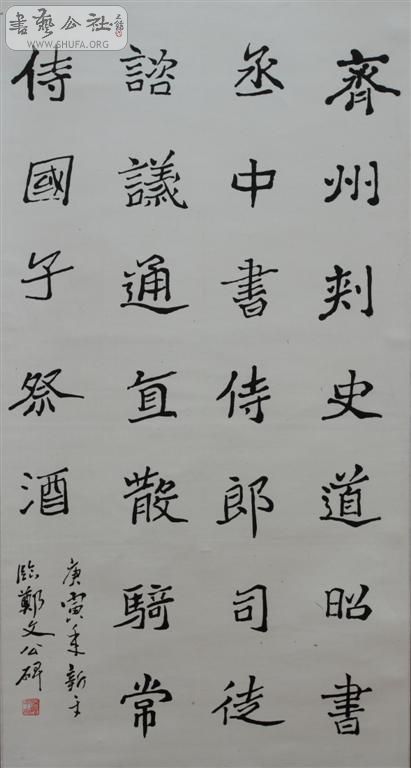 齊州刾史道昭書
丞中書侍郎司徒
諮議通直散騎常
侍國子祭酒
庚寅年新
臨鄭文公碑
書藝公社
WWW.SHUFA.ORG